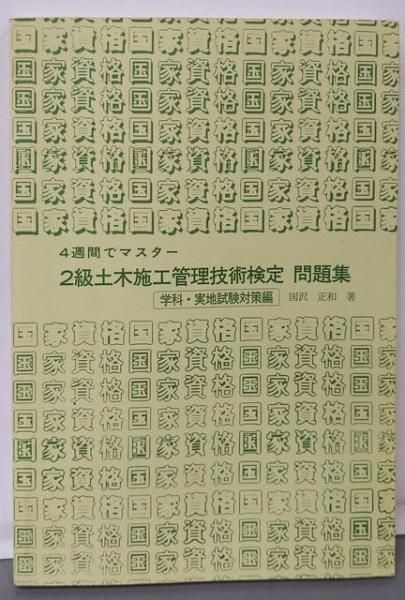 国家資格国家資格国家資格国
国家資格国家資格国家資格国
国家資格国家資格国家資格国
国家資格国家資格国家資格国
国家資格国家資格国家資格国
国家資格国家資格国家資格国
国家資格国家資格国家資格国
国家資格国家資格国家資格国
4週間でマスター
2級土木施工管理技術検定 問題集
学科・実地試験対策編 国沢 正和 著
国家資格国家資格国家資格国
国家資格国家資格国家資格国
国家資格国家資格国家資格国
国家資格国家資格国家資格国
国家資格国家資格国家資格国
国家資格国家資格国家資格国
国家資格国家資格国家資格国
国家資格国家資格国家資格国
国家資格国家資格国家資格国